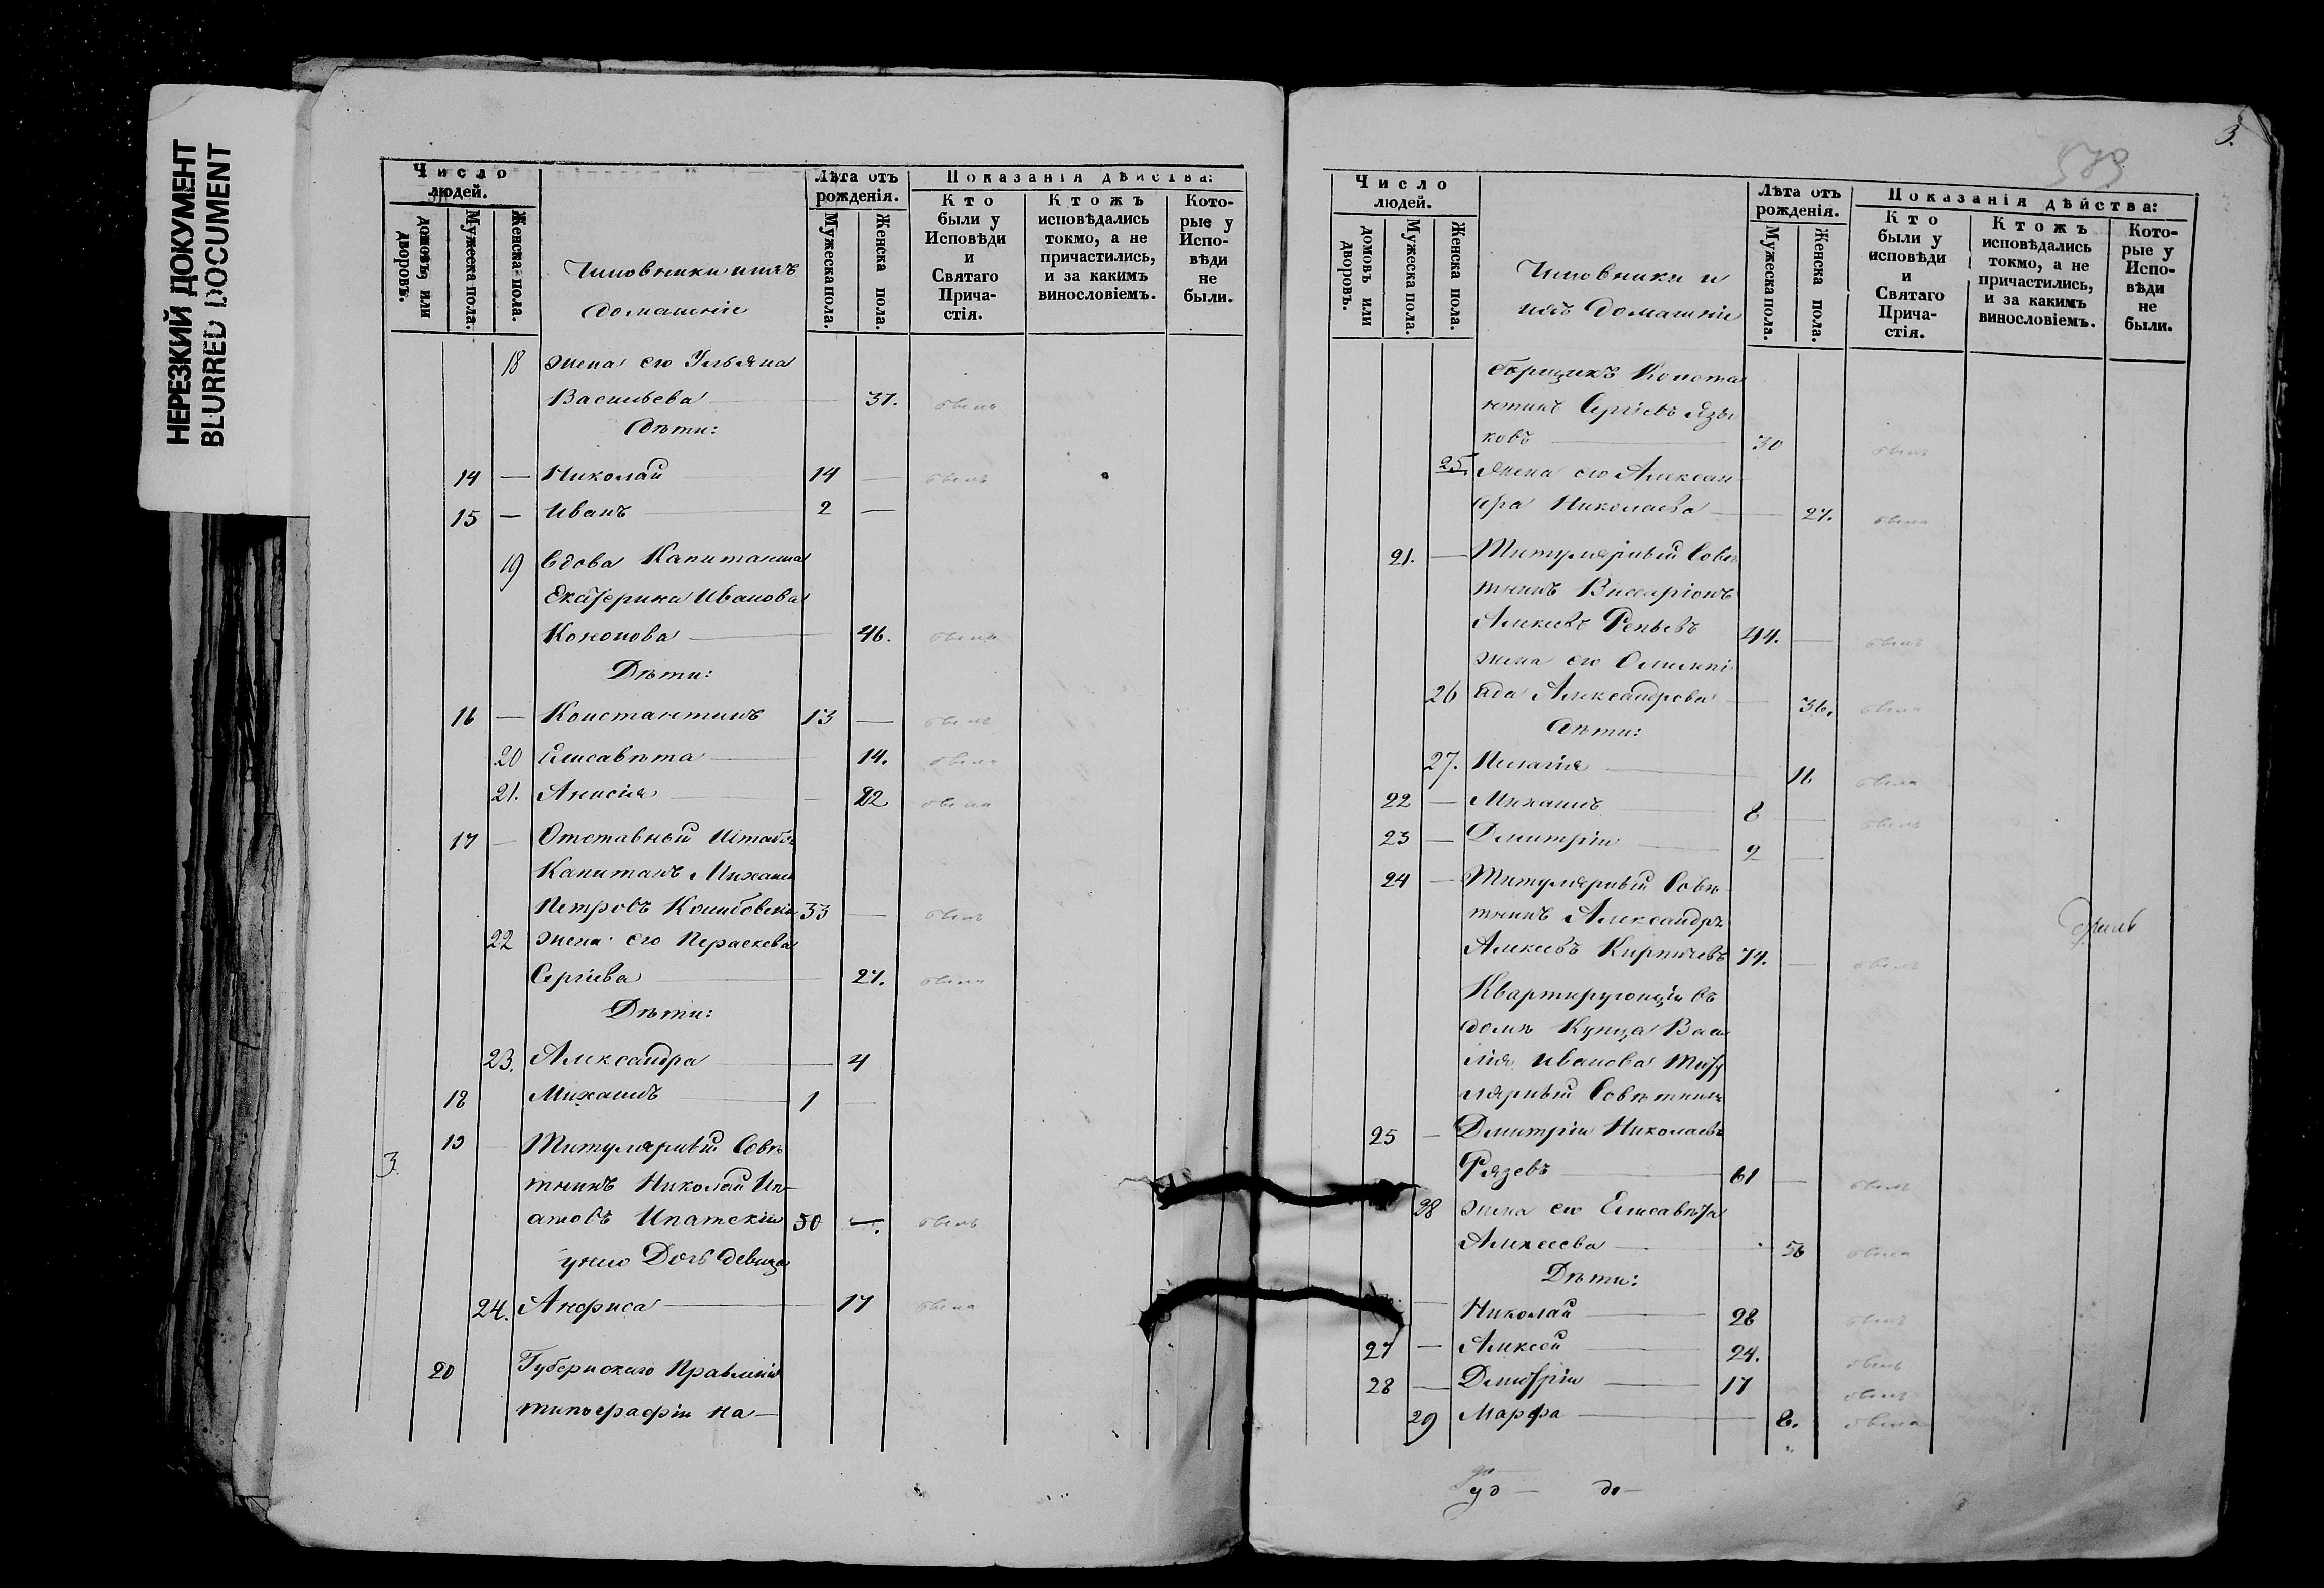 НЕРЕЗКИЙ ДОКУМЕНТ
BLURRED DOCUMENT
Число людей.
домовъ или дворовъ.
Мужеска пола.
Женска пола.
Чиновники и ихъ
домашніе
Лѣта отъ рожденія.
Мужеска пола.
Женска пола.
Показанія дѣйства:
Кто были у Исповѣди и Святаго Прича-стія.
Ктожъ исповѣдались токмо, а не причастились, и за какимъ винословіемъ.
Кото-рые у Испо-вѣди не были.
18 жена его Ульяна
Васильева 37. была
Дѣти:
14 — Николай 14 — былъ
15 — Иванъ 2 —
19 Вдова Капитанша
Екатерина Иванова
Кононова 46. была
Дѣти:
16 — Константинъ 13 — былъ
20 Елисавѣта 14. была
21. Анисія 22 была
17 — Отставный Штабсъ
Капитанъ Михаилъ
Петровъ 33 — былъ
22 жена его Параскева
Сергіева 27. была
Дѣти:
23. Александра 4
18 Михаилъ 1 —
3 19 — Титулярный Совѣ
тникъ Николай Ип
атовъ Ипатскій 50 — былъ
у него Дочь девица
24. Анфиса 17 была
20 Губернскаго Правленія
типографіи на—
3.
579
Число людей.
домовъ или дворовъ.
Мужеска пола.
Женска пола.
Чиновники и
ихъ домашніе
Лѣта отъ рожденія.
Мужеска пола.
Женска пола.
Показанія дѣйства:
Кто были у исповѣди и Святаго Прича-стія.
Ктожъ исповѣдались токмо, а не причастились, и за какимъ винословіемъ.
Кото-рые у Испо-вѣди не были.
борщикъ Конста
нтинъ Сергіевъ Язы
ковъ 30 былъ
25. жена его Алексан
дра Николаева 27. была
21. — Титулярный Совѣ
тникъ Виссаріонъ
Алексѣевъ Репьевъ 44. — былъ
жена его Олимпі
26 ада Александрова 36. была
Дѣти:
27. Пелагія 16 была
22 — Михаилъ 8 — былъ
23 — Дмитрій 2 —
24 — Титулярный Совѣ
тникъ Александръ
Алексѣевъ Кирпичевъ 74. — былъ
Квартирующія въ
домѣ Купца Васи
лія Иванова Титу
лярный Совѣтникъ
25 — Дмитрій Николаевъ
Рязевъ 61 — былъ
28 жена его Елисавѣта
Алексеева 56 была
Дѣти:
— Николай 28 былъ
27 — Алексей 24. былъ
28 — Дмитрій 17 былъ
29 Марфа 8. была